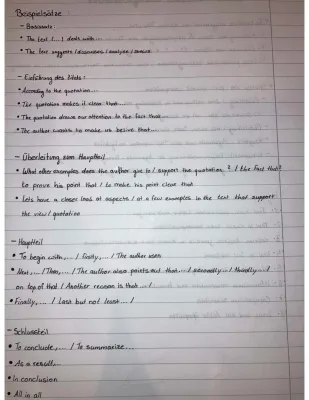 Beispielsätze:
- Basissatz:
• The text (...) deals with...
• The text suggests / discusses / analyse / shows
- Einführung des Zitats:
• According to the quotation...
• The quotation makes it clear that...
• The quotation draws our attention to the fact that...
• The author wants to make us belive that...
- Überleitung zum Hauptteil
• What other examples does the author give to / support the quotation? / the fact that?
to prove his point that / to make his point clear that
• Lets have a closer look at aspects / at a few examples in the text that support
the view / quotation
- Hauptteil
• To begin with,... / Firstly,... / The author uses
• Next,... / Then,... / The author also points out that... / secondly... / thirdly... /
on top of that / Another reason is that... /
• Finally,... / Last but not least... /
- Schlussteil
• To conclude,... / To summarize...
• As a result...
• In conclusion
• All in all